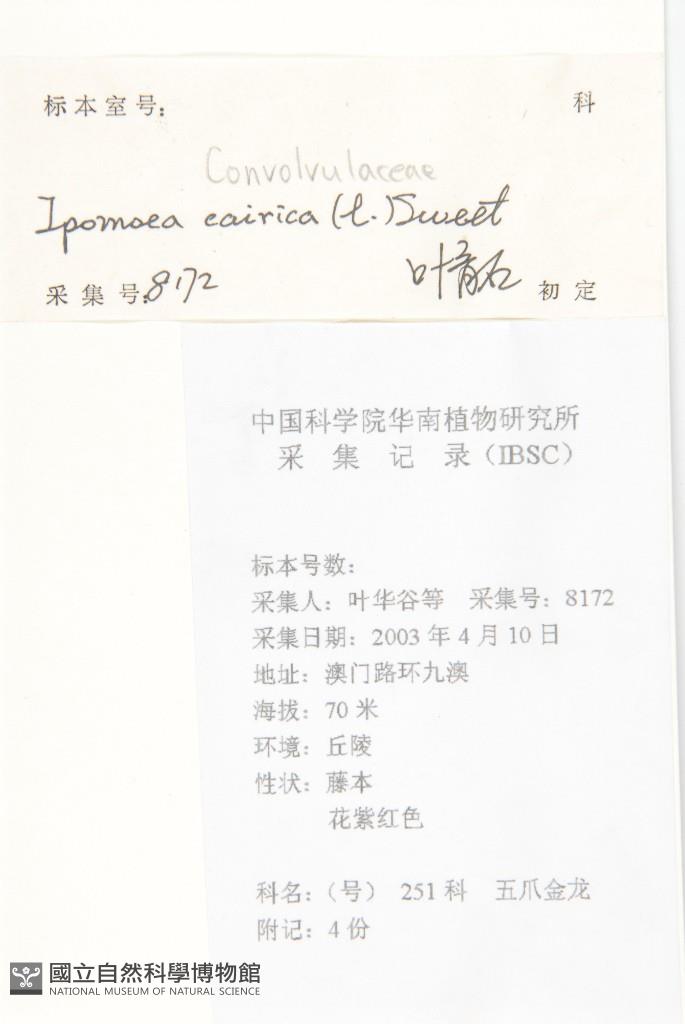 标本室号： 科
Convolvulaceae
Ipomoea cairica (L.) Sweet
采集号:8172 叶 初定
中国科学院华南植物研究所
采集记录（IBSC）
标本号数：
采集人：叶华谷等 采集号：8172
采集日期：2003 年 4 月 10 日
地址：澳门路环九澳
海拔：70 米
环境：丘陵
性状：藤本
花紫红色
科名：（号） 251 科 五爪金龙
附记：4 份
國立自然科學博物館
NATIONAL MUSEUM OF NATURAL SCIENCE